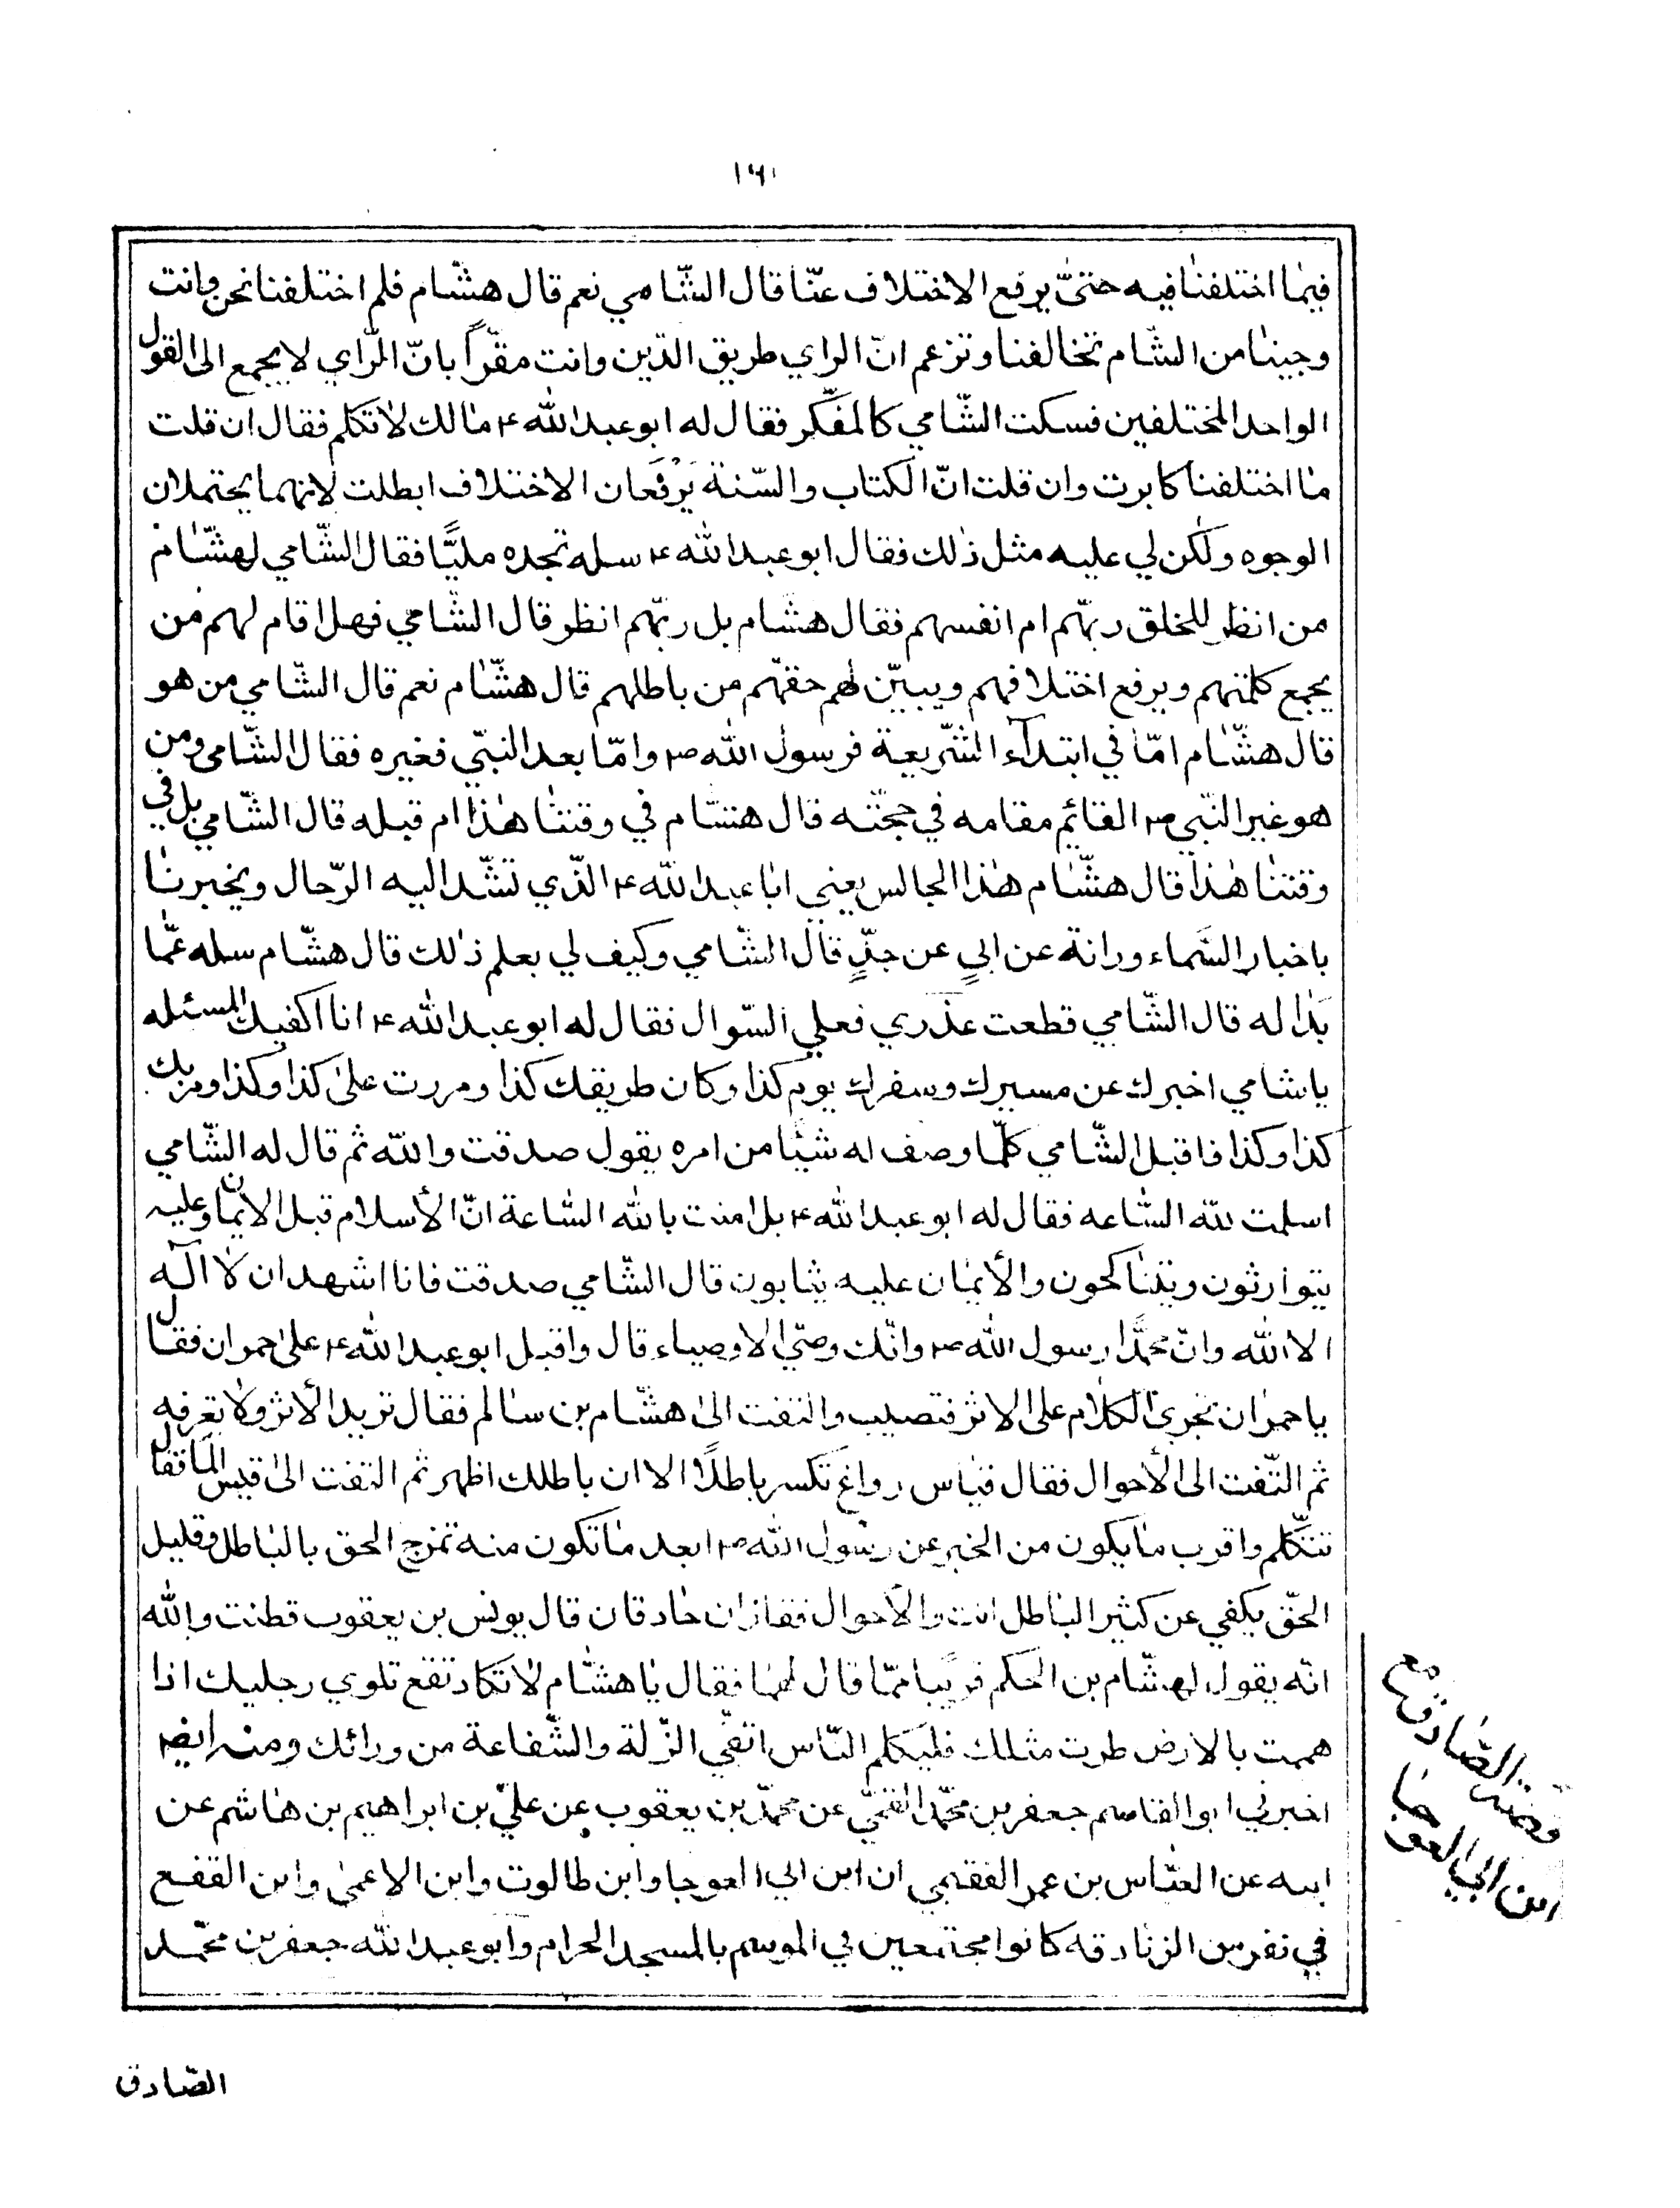 ١٦١
فيما اختلفنا فيه حتى يرفع الاختلاف عنّا قال الشّامي نعم قال هشّام فلم اختلفنا نحن وانت
وجيتنا من الشّام تخالفنا وتزعم انّ الراي طريق الدّين وانت مقرّاً بانّ الرّاي لا يجمع الى القول
الواحد المختلفين فسكت الشّامي كالمفكّر فقال له ابو عبد الله ع مالك لا تكلم فقال ان قلت
ما اختلفنا كابرت وان قلت انّ الكتاب والسّنة يَرْفَعان الاختلاف ابطلت لانهما يحتملان
الوجوه ولكن لي عليه مثل ذلك فقال ابو عبد الله ع سله تجده مليًّا فقال الشّامي لهشّام
من انظر للخلق ربّهم ام انفسهم فقال هشّام بل ربّهم انظر قال الشّامي فهل اقام لهم من
يجمع كلمتهم ويرفع اختلافهم ويبيّن لهم حقّهم من باطلهم قال هشّام نعم قال الشّامي من هو
قال هشّام امّا في ابتدآء الشّريعة فرسول الله ص وامّا بعد النبّي فغيره فقال الشّامي ومن
هو غير النبّي ص القائم مقامه في حجّته قال هشّام في وقتنا هذا ام قبله قال الشّامي بل في
وقتنا هذا قال هشّام هذا الجالس يعني ابا عبد الله ع الّذي تشّد اليه الرّحال ويخبرنا
باخبار السَّماء وراثة عن ابٍ عن جدٍّ قال الشّامي وكيف لي بعلم ذلك قال هشّام سله عمّا
بَدا له قال الشّامي قطعت عذري فعلي السّوال فقال له ابو عبد الله ع انا اكفيك المسئله
ياشامي اخبرك عن مسيرك وسفرك يوم كذا وكان طريقك كذا ومررت على كذا وكذا ومر بك
كذا وكذا فاقبل الشّامي كلّما وصف له شيئا من امره يقول صدقت والله ثم قال له الشّامي
اسلمت لله السّاعه فقال له ابو عبد الله ع بل امنت بالله السّاعة انّ الأسلام قبل الايمان وعليه
يتوارثون ويتناكحون والأيمان عليه يثابون قال الشّامي صدقت فانا اشهد ان لا آله
الا الله وانّ محمّدًا رسول الله ص وانّك وصيّ الاوصياء قال واقبل ابو عبد الله ع على حمران فقال
يا حمران تجري الكلام على الاثر فتصيب والتفت الى هشّام بن سالم فقال تريد الأثر ولا تعرفه
ثم التّفت الى الأحوال فقال قيّاس رواغ تكسر باطلًا الا ان باطلك اظهر ثم التفت الى قيس الماصر فقال
تتكّلم واقرب ما يكون من الخبر عن رسول الله ص ابعد ما تكون منه تمزج الحق بالباطل وقليل
الحّق يكفي عن كثير الباطل انت والأحوال قفازان حاذقان قال يونس بن يعقوب فظننت والله
انّه يقول لهشّام بن الحكم قريبا ممّا قال لهما فقال يا هشّام لا تكاد تقع تلوي رجليك اذا
هممت بالارض طرت مثلك فليكلم النّاس اتقّي الزّلة والشّفاعة من ورائك ومنه ايضا
اخبرني ابو القاسم جعفر بن محمّد القمّي عن محمّد بن يعقوب عن عليّ بن ابراهيم بن هاشم عن
ابيه عن العبّاس بن عمر الفقيمي ان ابن ابي العوجا وابن طالوت وابن الاعمى وابن القفع
في نفر من الزنادقه كانوا مجتمعين في الموسم بالمسجد الحرام وابو عبد الله جعفر بن محمّد
قصّة الصّادق ع مع
ابن ابي العوجا
الصّادق